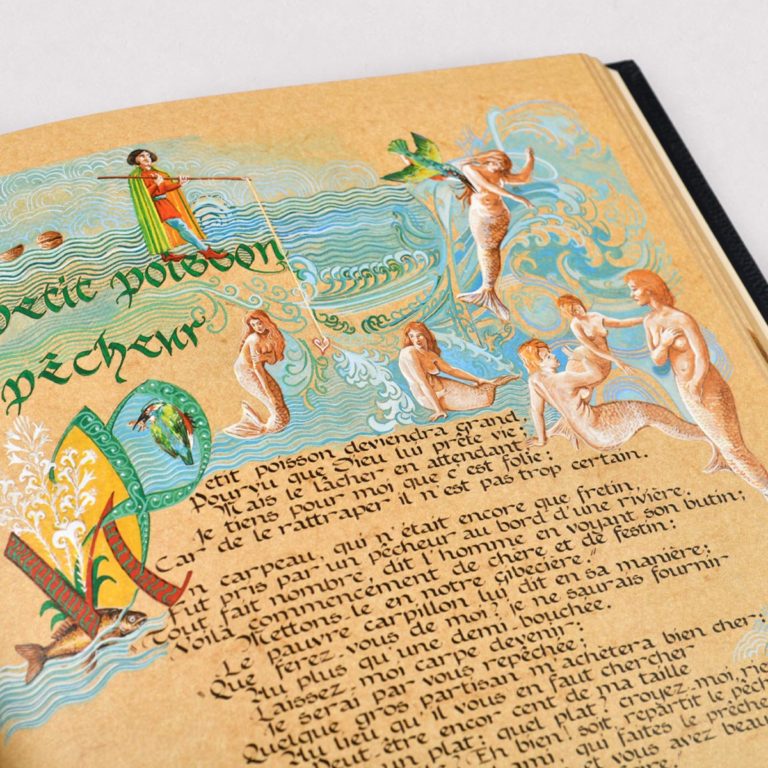 petit poisson
pêcheur
Petit poisson deviendra grand
Pourvu que Dieu lui prête vie;
Mais le lâcher en attendant,
Je tiens pour moi que c'est folie;
Car de le rattraper il n'est pas trop certain.
Un carpeau, qui n'était encore que fretin,
Fut pris par un pêcheur au bord d'une rivière.
"Tout fait nombre, dit l'homme en voyant son butin;
Voilà commencement de chère et de festin:
Mettons-le en notre gibecière."
Le pauvre carpillon lui dit en sa manière:
"Que ferez-vous de moi? je ne saurais fournir
Au plus qu'une demi-bouchée.
Laissez-moi carpe devenir:
Je serai par vous repêchée;
Quelque gros partisan m'achètera bien cher:
Au lieu qu'il vous en faut chercher
Peut-être encor cent de ma taille
un plat: quel plat? croyez-moi,
Eh bien! soit, repartit le
ami, qui faites le
et vous avez